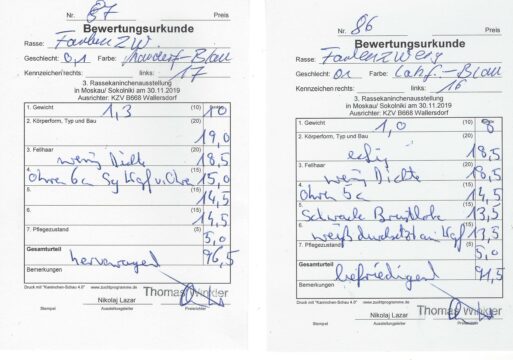 Nr. 87 Preis
Bewertungsurkunde
Rasse: Farbenzw.
Geschlecht: 0,1 Farbe: Blau
Kennzeichen/rechts: links: 17
3. Rassekaninchenausstellung
in Moskau/ Sokolniki am 30.11.2019
Ausrichter: KZV B668 Wallersdorf
1. Gewicht 1,3 (10) 10
2. Körperform, Typ und Bau (20) 19,0
3. Fellhaar (20)
wenig Dichte 18,5
4. Ohren 6 cm Kopf u. Ohren 15,0
5. 14,5
6. 14,5
7. Pflegezustand 5,0
Gesamturteil 96,5
hervorragend
Bemerkungen
Druck mit "Kaninchen-Schau 4.0" www.zuchtprogramme.de
Nikolaj Lazar Thomas Winkler
Stempel Ausstellungsleiter Preisrichter
Nr. 86 Preis
Bewertungsurkunde
Rasse: Farbenzwerg
Geschlecht: 0,1 Farbe: Blau
Kennzeichen/rechts: links: 16
3. Rassekaninchenausstellung
in Moskau/ Sokolniki am 30.11.2019
Ausrichter: KZV B668 Wallersdorf
1. Gewicht 1,0 (10) 8
2. Körperform, Typ und Bau (20)
eckig 18,5
3. Fellhaar (20)
wenig Dichte 18,5
4. Ohren 5 cm 14,5
5. Schwache 13,5
6. weiß durchsetzt am Kopf 13,5
7. Pflegezustand 5,0
Gesamturteil 91,5
befriedigend
Bemerkungen
Druck mit "Kaninchen-Schau 4.0" www.zuchtprogramme.de
Nikolaj Lazar Thomas Winkler
Stempel Ausstellungsleiter Preisrichter